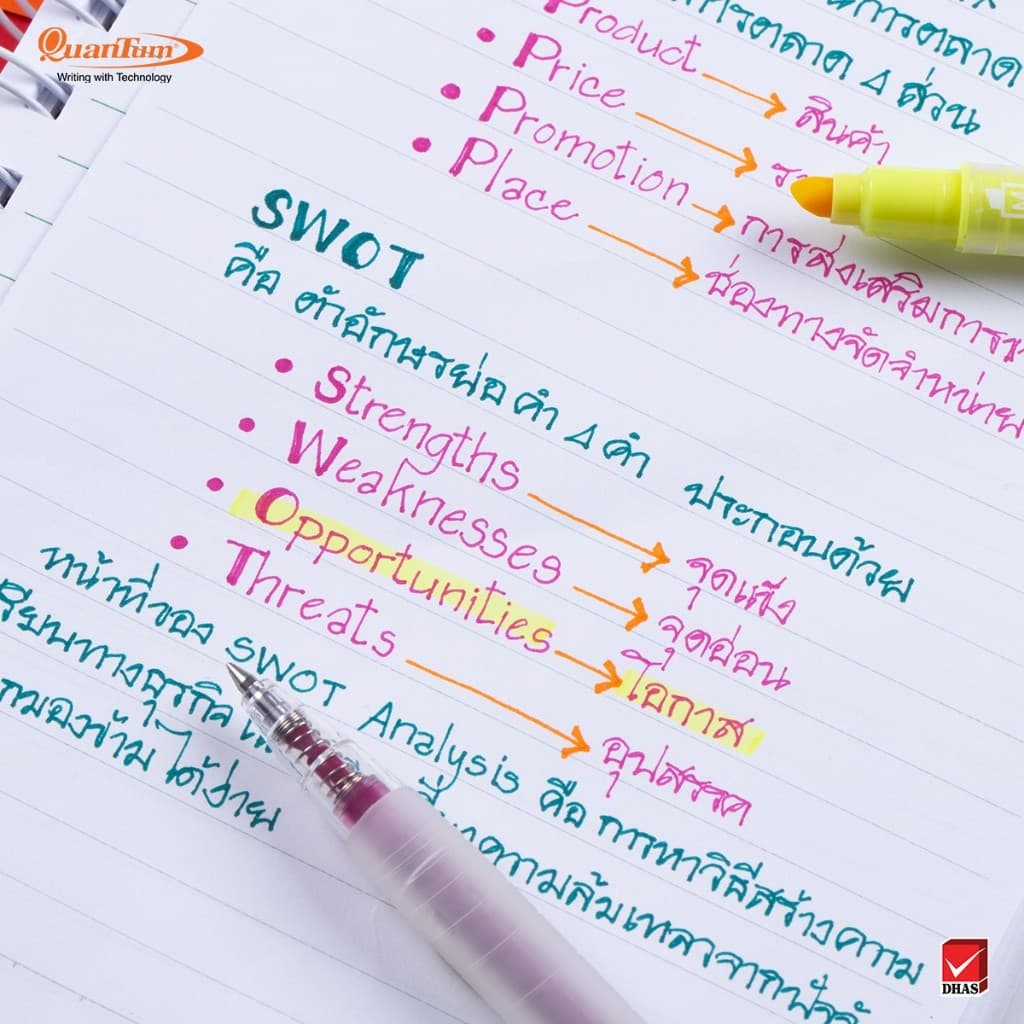 QuanTum
Writing with Technology
การตลาด
การตลาด 4 ส่วน
Product → สินค้า
• Price →
• Promotion → การส่งเสริมการ
• Place → ช่องทางจัดจำหน่าย
SWOT
คือ ตัวอักษรย่อ คำ 4 คำ ประกอบด้วย
• Strengths → จุดแข็ง
• Weaknesses → จุดอ่อน
• Opportunities → โอกาส
• Threats → อุปสรรค
หน้าที่ของ SWOT Analysis คือ การหาวิธีสร้างความ
ทางธุรกิจ ความล้มเหลวจาก
มองข้ามได้ง่าย
DHAS